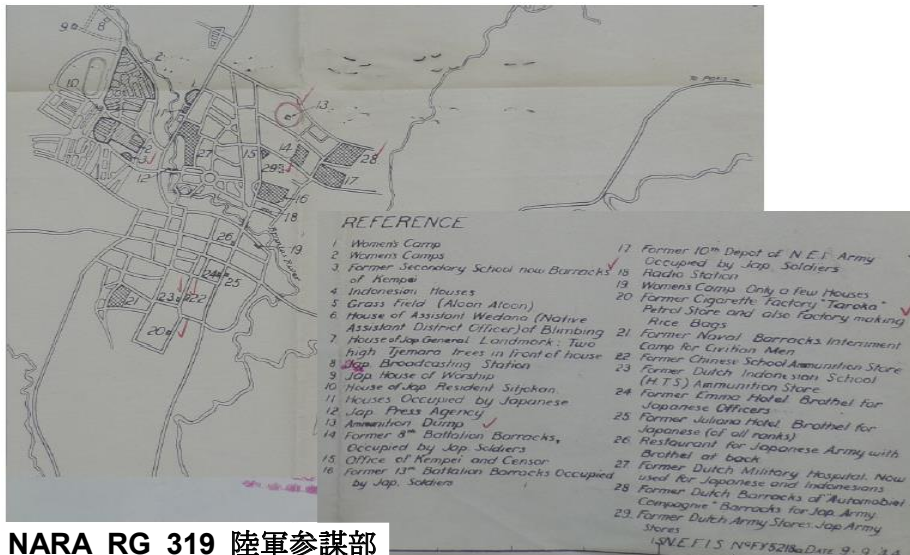 9 8
2
10
1
13
2
3
12
27
15
14
29
28
17
16
18
26
19
River
24
25
21
23
22
20
REFERENCE
1 Women's Camp
2 Women's Camps
3. Former Secondary School now Barracks of Kempei
4 Indonesian Houses
5 Grass Field (Aloon Aloon)
6 House of Assistant Wedana (Native
Assistant District Officer) of Blimbing
7 House of Jap General Landmark: Two
high Tjemara trees in front of house
8 Jap. Broadcasting Station
9 Jap House of Worship
10 House of Jap Resident
11 Houses Occupied by Japanese
12 Jap Press Agency
13 Ammunition Dump
14 Former 8th Battalion Barracks,
Occupied by Jap. Soldiers
15 Office of Kempei and Censor
16 Former 13th Battalion Barracks Occupied
by Jap. Soldiers
17 Former 10th Depot of N.E.I. Army
Occupied by Jap. Soldiers
18 Radio Station
19 Women's Camp Only a few Houses
20 Former Cigarette Factory "Taroka"
Petrol Store and also Factory making
Rice Bags
21 Former Naval Barracks Internment
Camp for Civilian Men
22 Former Chinese School Ammunition Store
23 Former Dutch Indonesian School
(H.T.S) Ammunition Store
24 Former Emma Hotel Brothel for
Japanese Officers
25 Former Juliana Hotel. Brothel for
Japanese (of all ranks)
26 Restaurant for Japanese Army with
Brothel at back
27 Former Dutch Military Hospital. Now
used for Japanese and Indonesians
28 Former Dutch Barracks of "Automobiel
Compagnie" Barracks for Jap. Army.
29. Former Dutch Army Stores. Jap Army
Stores
N.E.F.I.S
NARA RG 319 陸軍参謀部